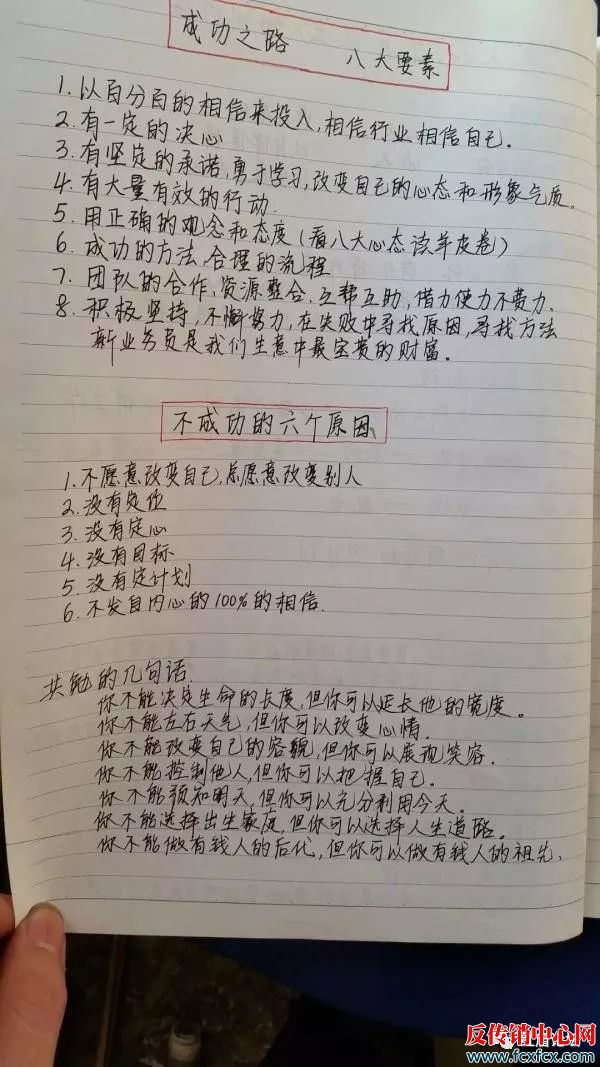 成功之路 八大要素
1. 以百分百的相信来投入,相信行业相信自己.
2. 有一定的决心
3. 有坚定的承诺,勇于学习,改变自己的心态和形象气质.
4. 有大量有效的行动.
5. 用正确的观念和态度(看八大心态该羊皮卷)
6. 成功的方法,合理的流程
7. 团队的合作,资源整合,互帮互助,借力使力不费力.
8. 积极坚持,不懈努力,在失败中寻找原因,寻找方法
新业务员是我们生意中最宝贵的财富.
不成功的六个原因
1. 不愿意改变自己,总愿意改变别人
2. 没有定位
3. 没有定心
4. 没有目标
5. 没有定计划
6. 不发自内心的100%的相信.
共勉的几句话
你不能决定生命的长度,但你可以延长他的宽度。
你不能左右天气,但你可以改变心情.
你不能改变自己的容貌,但你可以展现笑容.
你不能控制他人,但你可以把握自己.
你不能预知明天,但你可以充分利用今天。
你不能选择出生家庭,但你可以选择人生道路.
你不能做有钱人的后代,但你可以做有钱人的祖先.
反传销中心网
www.fcxfcx.com